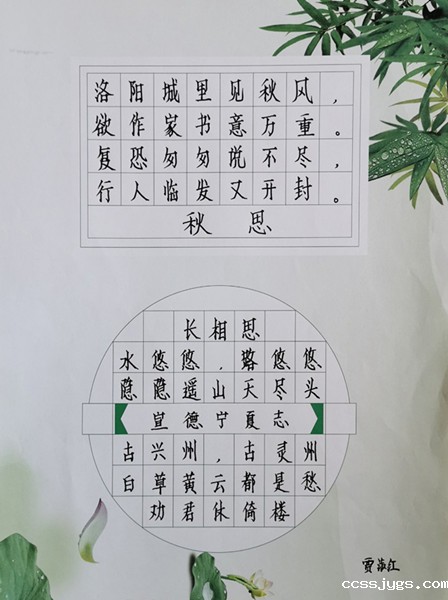 洛阳城里见秋风，
欲作家书意万重。
复恐匆匆说不尽，
行人临发又开封。
秋思
长相思
水悠悠，路悠悠
隐隐遥山天尽头
宣德宁夏志
古兴州，古灵州
白草黄云都是愁
劝君休倚楼
贾海江
ccssjygs.com